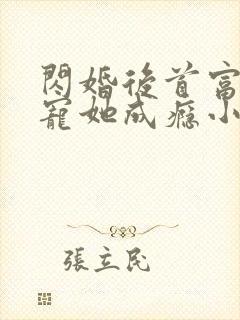 閃婚後首富
寵她成癮小
張立民